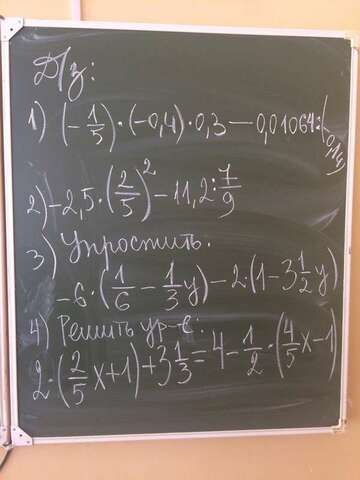 Д/з:
1) (-1/5)·(-0,4)·0,3-0,01064:(-0,14)
2) -2,5·(2/5)²-11,2:7/9
3) Упростить.
-6·(1/6-1/3y)-2·(1-3 1/2y)
4) Решить ур-е:
2·(2/5x+1)+3 1/3=4-1/2·(4/5x-1)